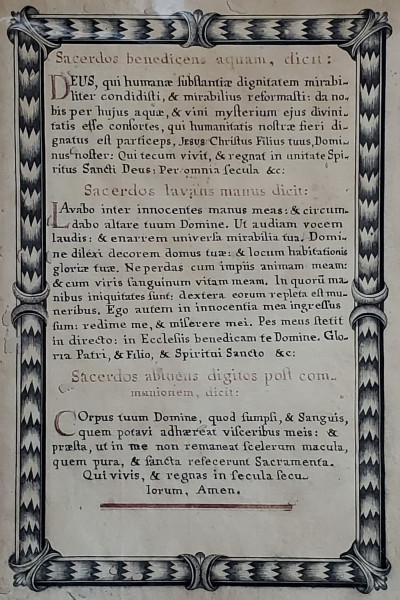 Sacerdos benedicens aquam, dicit:
DEUS, qui humanæ ſubſtantiæ dignitatem mirabi-
liter condidiſti, & mirabilius reformaſti: da no-
bis per hujus aquæ, & vini myſterium ejus divini-
tatis eſſe conſortes, qui humanitatis noſtræ fieri di-
gnatus est particeps, Jesus Chriſtus Filius tuus, Domi-
nus noſter: Qui tecum vivit, & regnat in unitate Spi-
ritus Sancti Deus: Per omnia ſecula &c:
Sacerdos lavans manus dicit:
LAvabo inter innocentes manus meas: & circum-
dabo altare tuum Domine. Ut audiam vocem
laudis: & enarrem univerſa mirabilia tua. Domi-
ne dilexi decorem domus tuæ: & locum habitationis
gloriæ tuæ. Ne perdas cum impiis animam meam:
& cum viris ſanguinum vitam meam. In quorū ma-
nibus iniquitates ſunt: dextera eorum repleta eſt mu-
neribus. Ego autem in innocentia mea ingreſſus
ſum: redime me, & miſerere mei. Pes meus ſtetit
in directo: in Eccleſiis benedicam te Domine. Glo-
ria Patri, & Filio, & Spiritui Sancto &c:
Sacerdos abluens digitos poſt com-
munionem, dicit:
COrpus tuum Domine, quod ſumpſi, & Sanguis,
quem potavi adhæreat viſceribus meis: &
præſta, ut in me non remaneat ſcelerum macula,
quem pura, & ſancta refecerunt Sacramenta.
Qui vivis, & regnas in ſecula ſecu-
lorum, Amen.